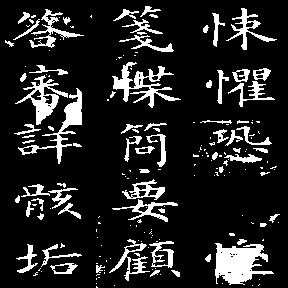 悚懼恐
箋牒簡要顧
答審詳骸垢